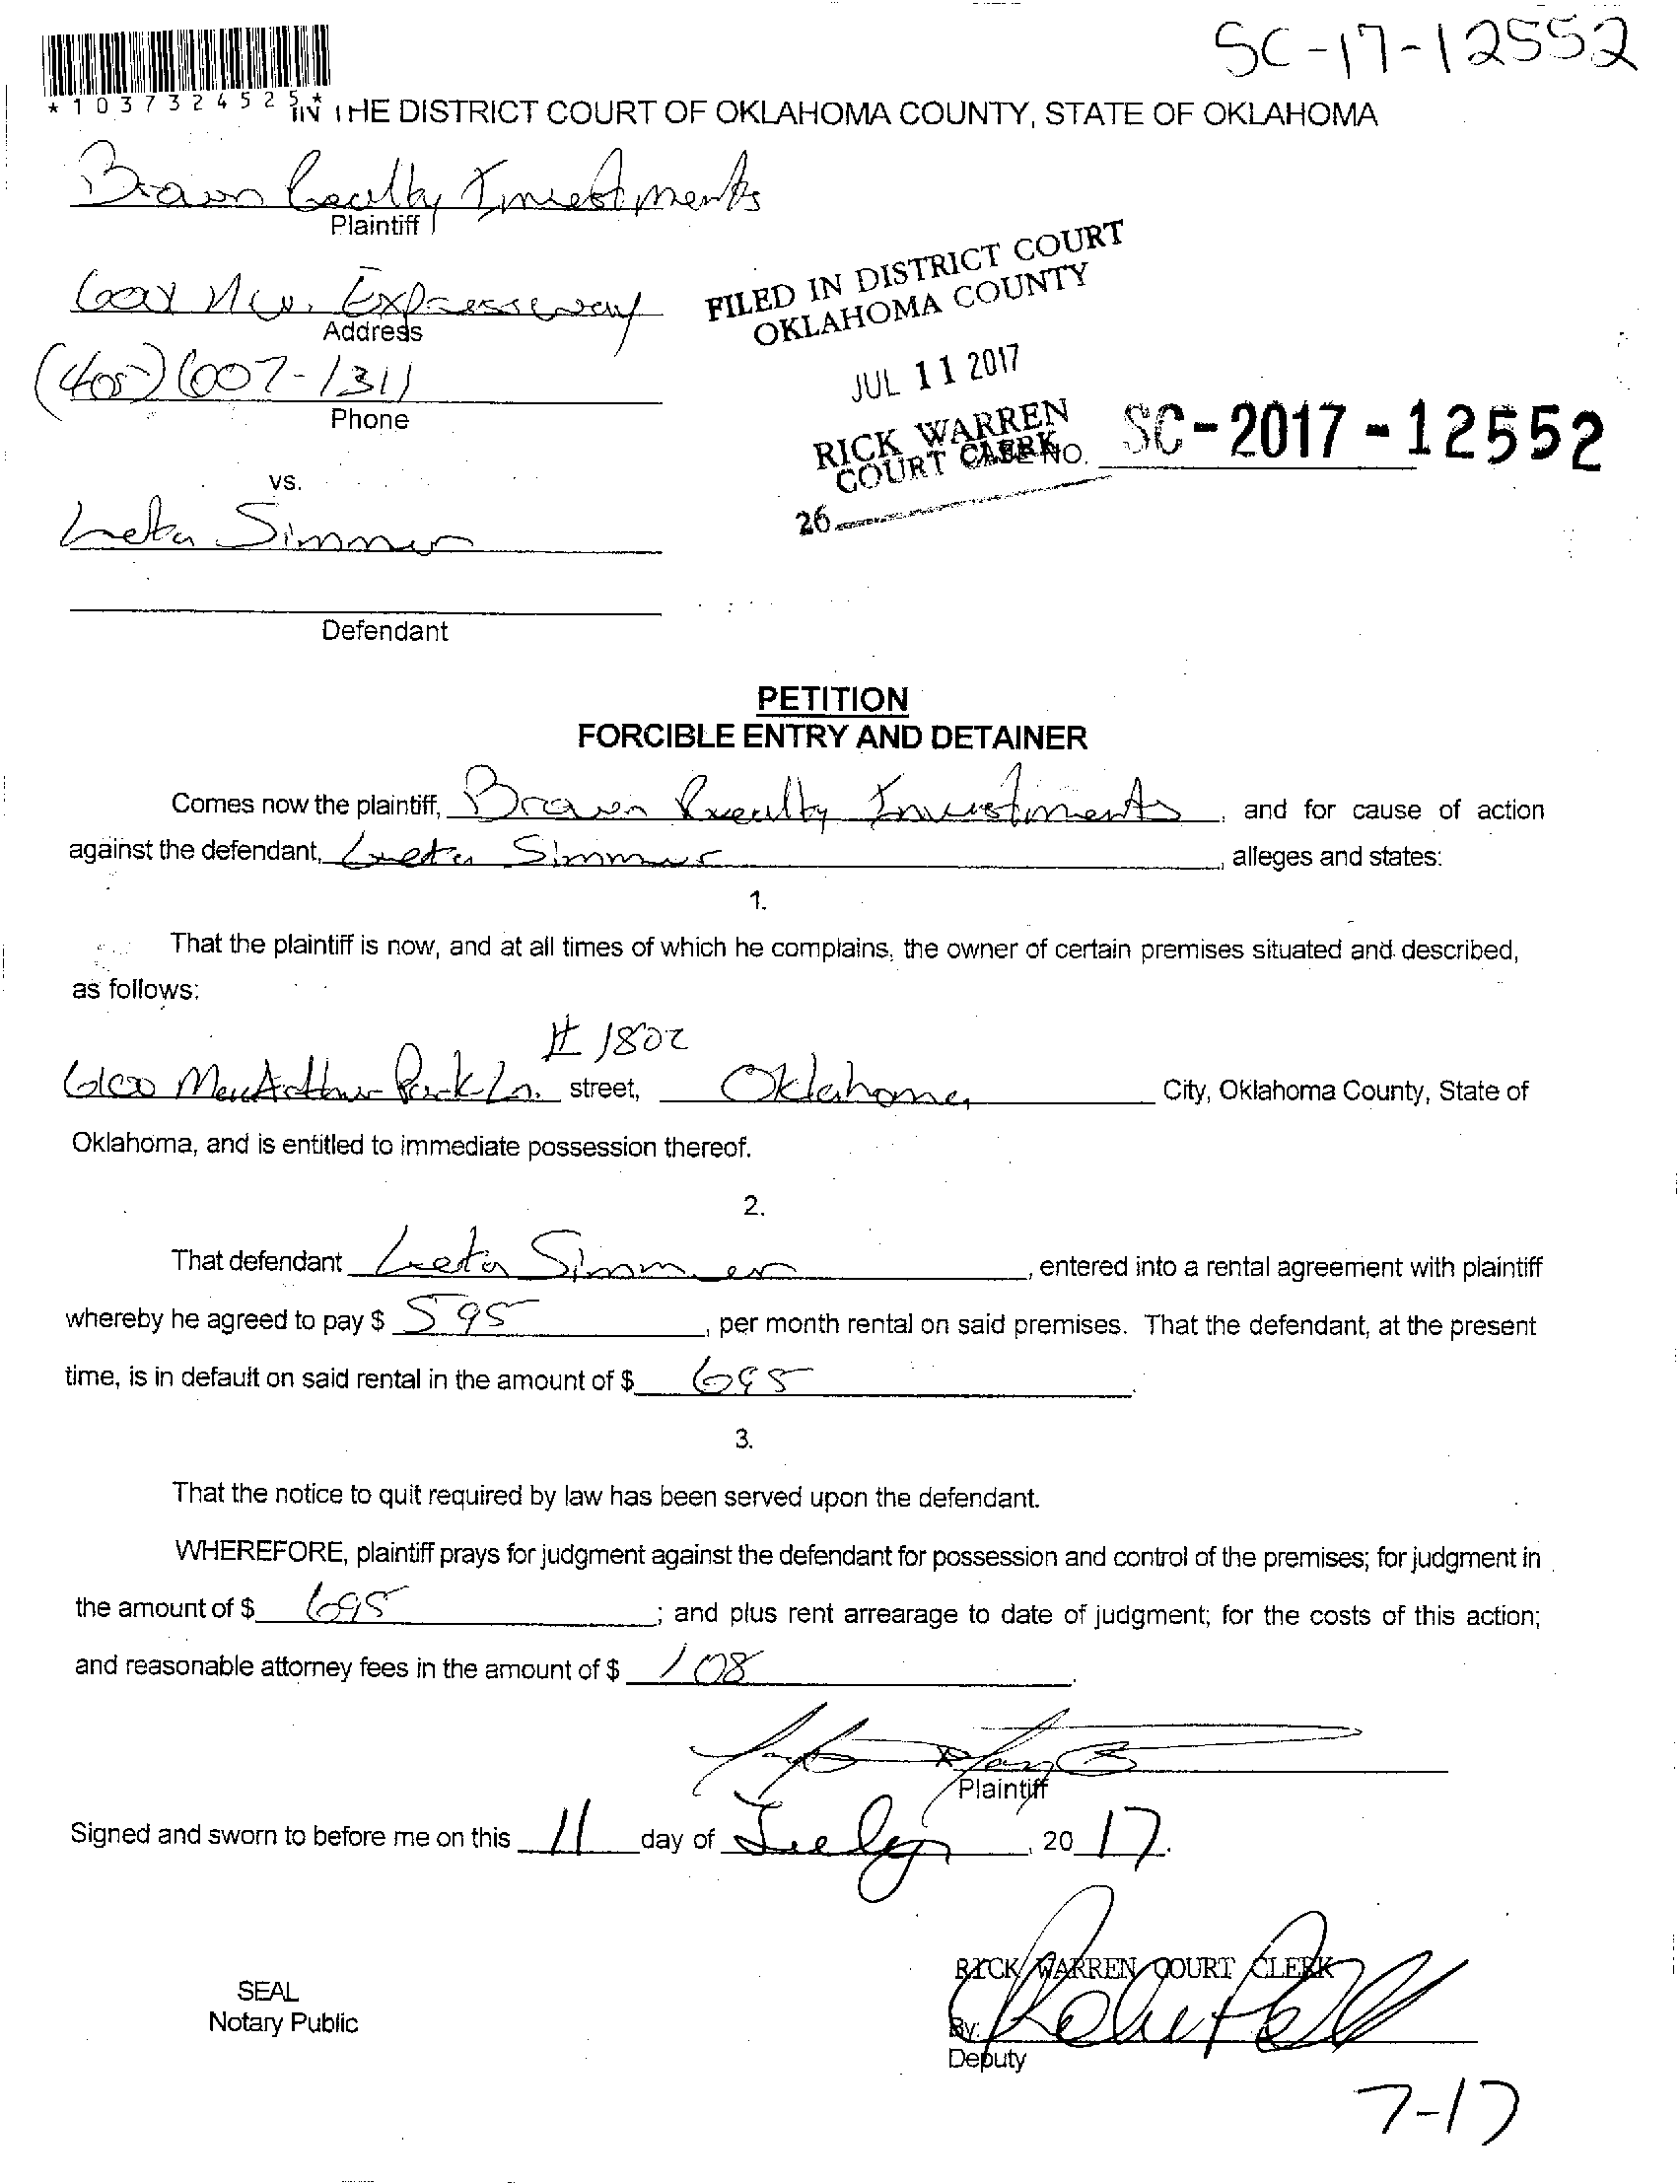 SC-17-12552
*1037324525*
IN THE DISTRICT COURT OF OKLAHOMA COUNTY, STATE OF OKLAHOMA
Brawn Realty Investments
Plaintiff
NW. Expressway
Address
(405) 607-1311
Phone
FILED IN DISTRICT COURT
OKLAHOMA COUNTY
JUL 11 2017
RICK WARREN
COURT CLERK
CASE NO. SC-2017-12552
26
vs.
Leta Simmer
Defendant
PETITION
FORCIBLE ENTRY AND DETAINER
Comes now the plaintiff, Brawn Realty Investments, and for cause of action
against the defendant, Leta Simmer, alleges and states:
1.
That the plaintiff is now, and at all times of which he complains, the owner of certain premises situated and described,
as follows:
# 1802
MacArthur Park Ln. street, Oklahoma City, Oklahoma County, State of
Oklahoma, and is entitled to immediate possession thereof.
2.
That defendant Leta Simmer, entered into a rental agreement with plaintiff
whereby he agreed to pay $ 595, per month rental on said premises. That the defendant, at the present
time, is in default on said rental in the amount of $ 695.
3.
That the notice to quit required by law has been served upon the defendant.
WHEREFORE, plaintiff prays for judgment against the defendant for possession and control of the premises; for judgment in
the amount of $ 695; and plus rent arrearage to date of judgment; for the costs of this action;
and reasonable attorney fees in the amount of $ 108.
Plaintiff
Signed and sworn to before me on this 11 day of July, 20 17.
RICK WARREN COURT CLERK
SEAL
Notary Public
By:
Deputy
7-17